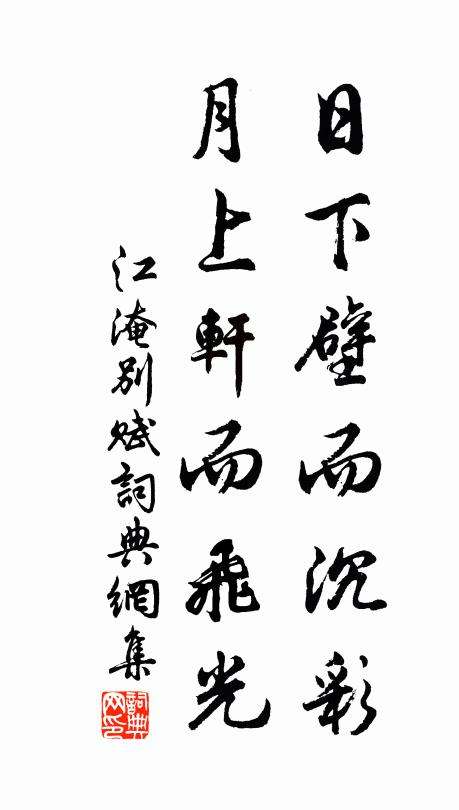 日下壁而沉彩
月上軒而飛光
江淹別賦詞典網集
詞典网印